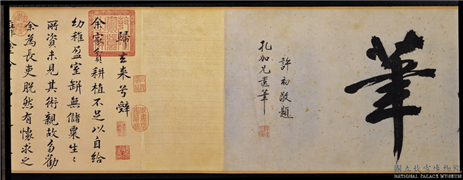 筆
許初敬題
孔加兄筆
歸去來兮辭
余家貧耕植不足以自給
幼稚盈室缾無儲粟生〻
所資未見其術親故多勸
余為長吏脫然有懷求之
國立故宮博物院
NATIONAL PALACE MUSEUM